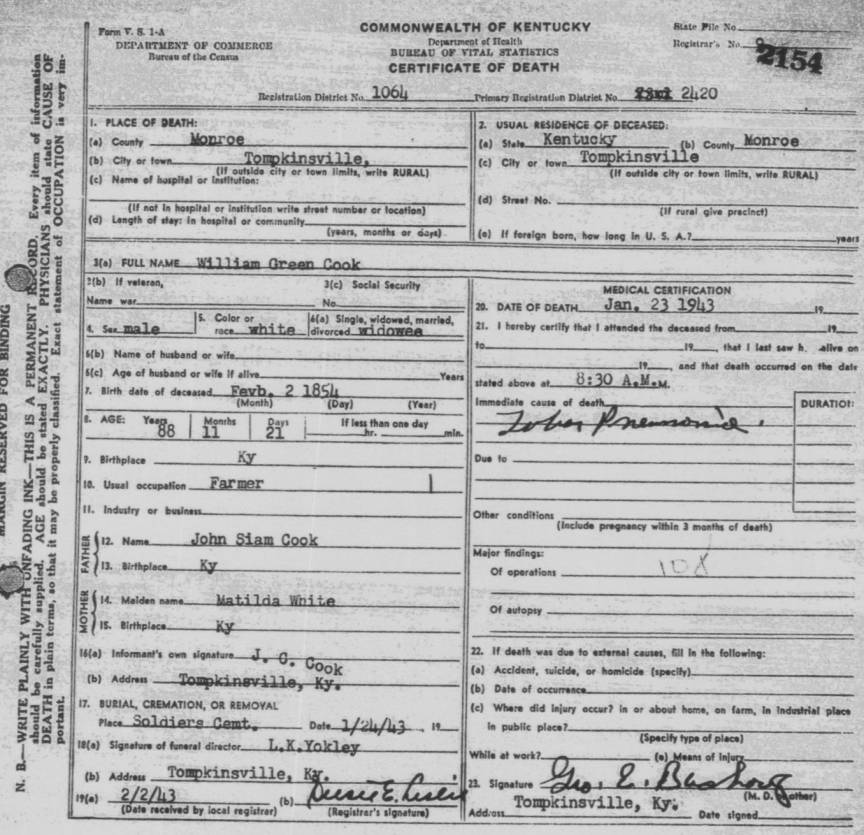 Form V. S. 1-A
DEPARTMENT OF COMMERCE
Bureau of the Census
COMMONWEALTH OF KENTUCKY
Department of Health
BUREAU OF VITAL STATISTICS
CERTIFICATE OF DEATH
State File No.
Registrar's No.
2154
Registration District No. 1064
Primary Registration District No. 2420
MARGIN RESERVED FOR BINDING
N. B.—WRITE PLAINLY WITH UNFADING INK—THIS IS A PERMANENT RECORD. Every item of information
should be carefully supplied. AGE should be stated EXACTLY. PHYSICIANS should state CAUSE OF
DEATH in plain terms, so that it may be properly classified. Exact statement of OCCUPATION is very im-
portant.
1. PLACE OF DEATH:
(a) County Monroe
(b) City or town Tompkinsville,
(If outside city or town limits, write RURAL)
(c) Name of hospital or institution:
(If not in hospital or institution write street number or location)
(d) Length of stay: In hospital or community
(years, months or days)
2. USUAL RESIDENCE OF DECEASED:
(a) State Kentucky (b) County Monroe
(c) City or town Tompkinsville
(If outside city or town limits, write RURAL)
(d) Street No.
(If rural give precinct)
(e) If foreign born, how long in U. S. A.? years
3(a) FULL NAME William Green Cook
3(b) If veteran,
Name war
3(c) Social Security
No.
4. Sex male
5. Color or
race white
6(a) Single, widowed, married,
divorced widowed
6(b) Name of husband or wife
6(c) Age of husband or wife if alive Years
7. Birth date of deceased Fevb. 2 1854
(Month) (Day) (Year)
8. AGE: Years Months Days If less than one day
88 11 21 hr. min.
9. Birthplace Ky
10. Usual occupation Farmer
11. Industry or business
FATHER
12. Name John Siam Cook
13. Birthplace Ky
MOTHER
14. Maiden name Matilda White
15. Birthplace Ky
16(a) Informant's own signature J. C. Cook
(b) Address Tompkinsville, Ky.
17. BURIAL, CREMATION, OR REMOVAL
Place Soldiers Cemt. Date 1/24/43, 19
18(a) Signature of funeral director L.K.Yokley
(b) Address Tompkinsville, Ky.
19(a) 2/2/43 (b)
(Date received by local registrar) (Registrar's signature)
MEDICAL CERTIFICATION
20. DATE OF DEATH Jan. 23 1943 19
21. I hereby certify that I attended the deceased from 19
to 19 , that I last saw h. alive on
19 , and that death occurred on the date
stated above at 8:30 A.M.M.
Immediate cause of death
DURATION:
Lobar Pneumonia.
Due to
Other conditions
(Include pregnancy within 3 months of death)
Major findings:
Of operations
108
Of autopsy
22. If death was due to external causes, fill in the following:
(a) Accident, suicide, or homicide (specify)
(b) Date of occurrence
(c) Where did injury occur? in or about home, on farm, in industrial place
in public place?
(Specify type of place)
While at work? (e) Means of injury
23. Signature Geo. E. (M. D. other)
Address Tompkinsville, Ky. Date signed